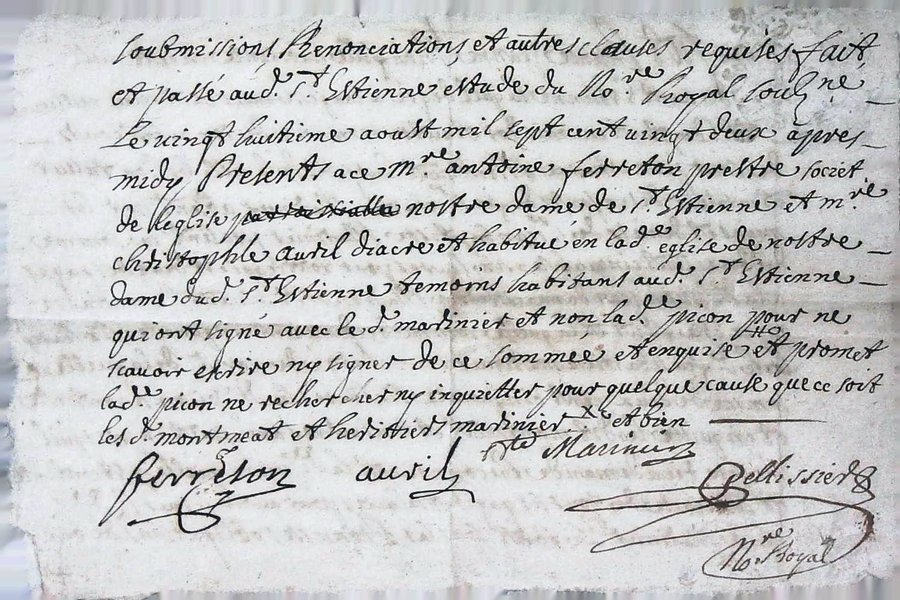 soubmissions Renonciations et autres clauses requises fait
et passé aud. St Estienne estude du Nore Royal soubne
Le vingt huitieme aoust mil sept cent vingt deux apres
midy Presents a ce mre antoine ferreton prestre societ.
de leglise nostre dame de St Estienne et mre
christophle auril diacre et habitue en lade eglise de nostre
dame dud. St Estienne temoins habitans aud. St Estienne
qui ont signé avec le d. marinier et non lade picon pour ne
scavoir escrire ny signer de ce sommée et enquise et promet
lade picon ne rechercher ny inquietter pour quelque cause que ce soit
les d. montmeat et heritiers marinier et bien
ferreton auril Marinier
Pellissier
Nore Royal